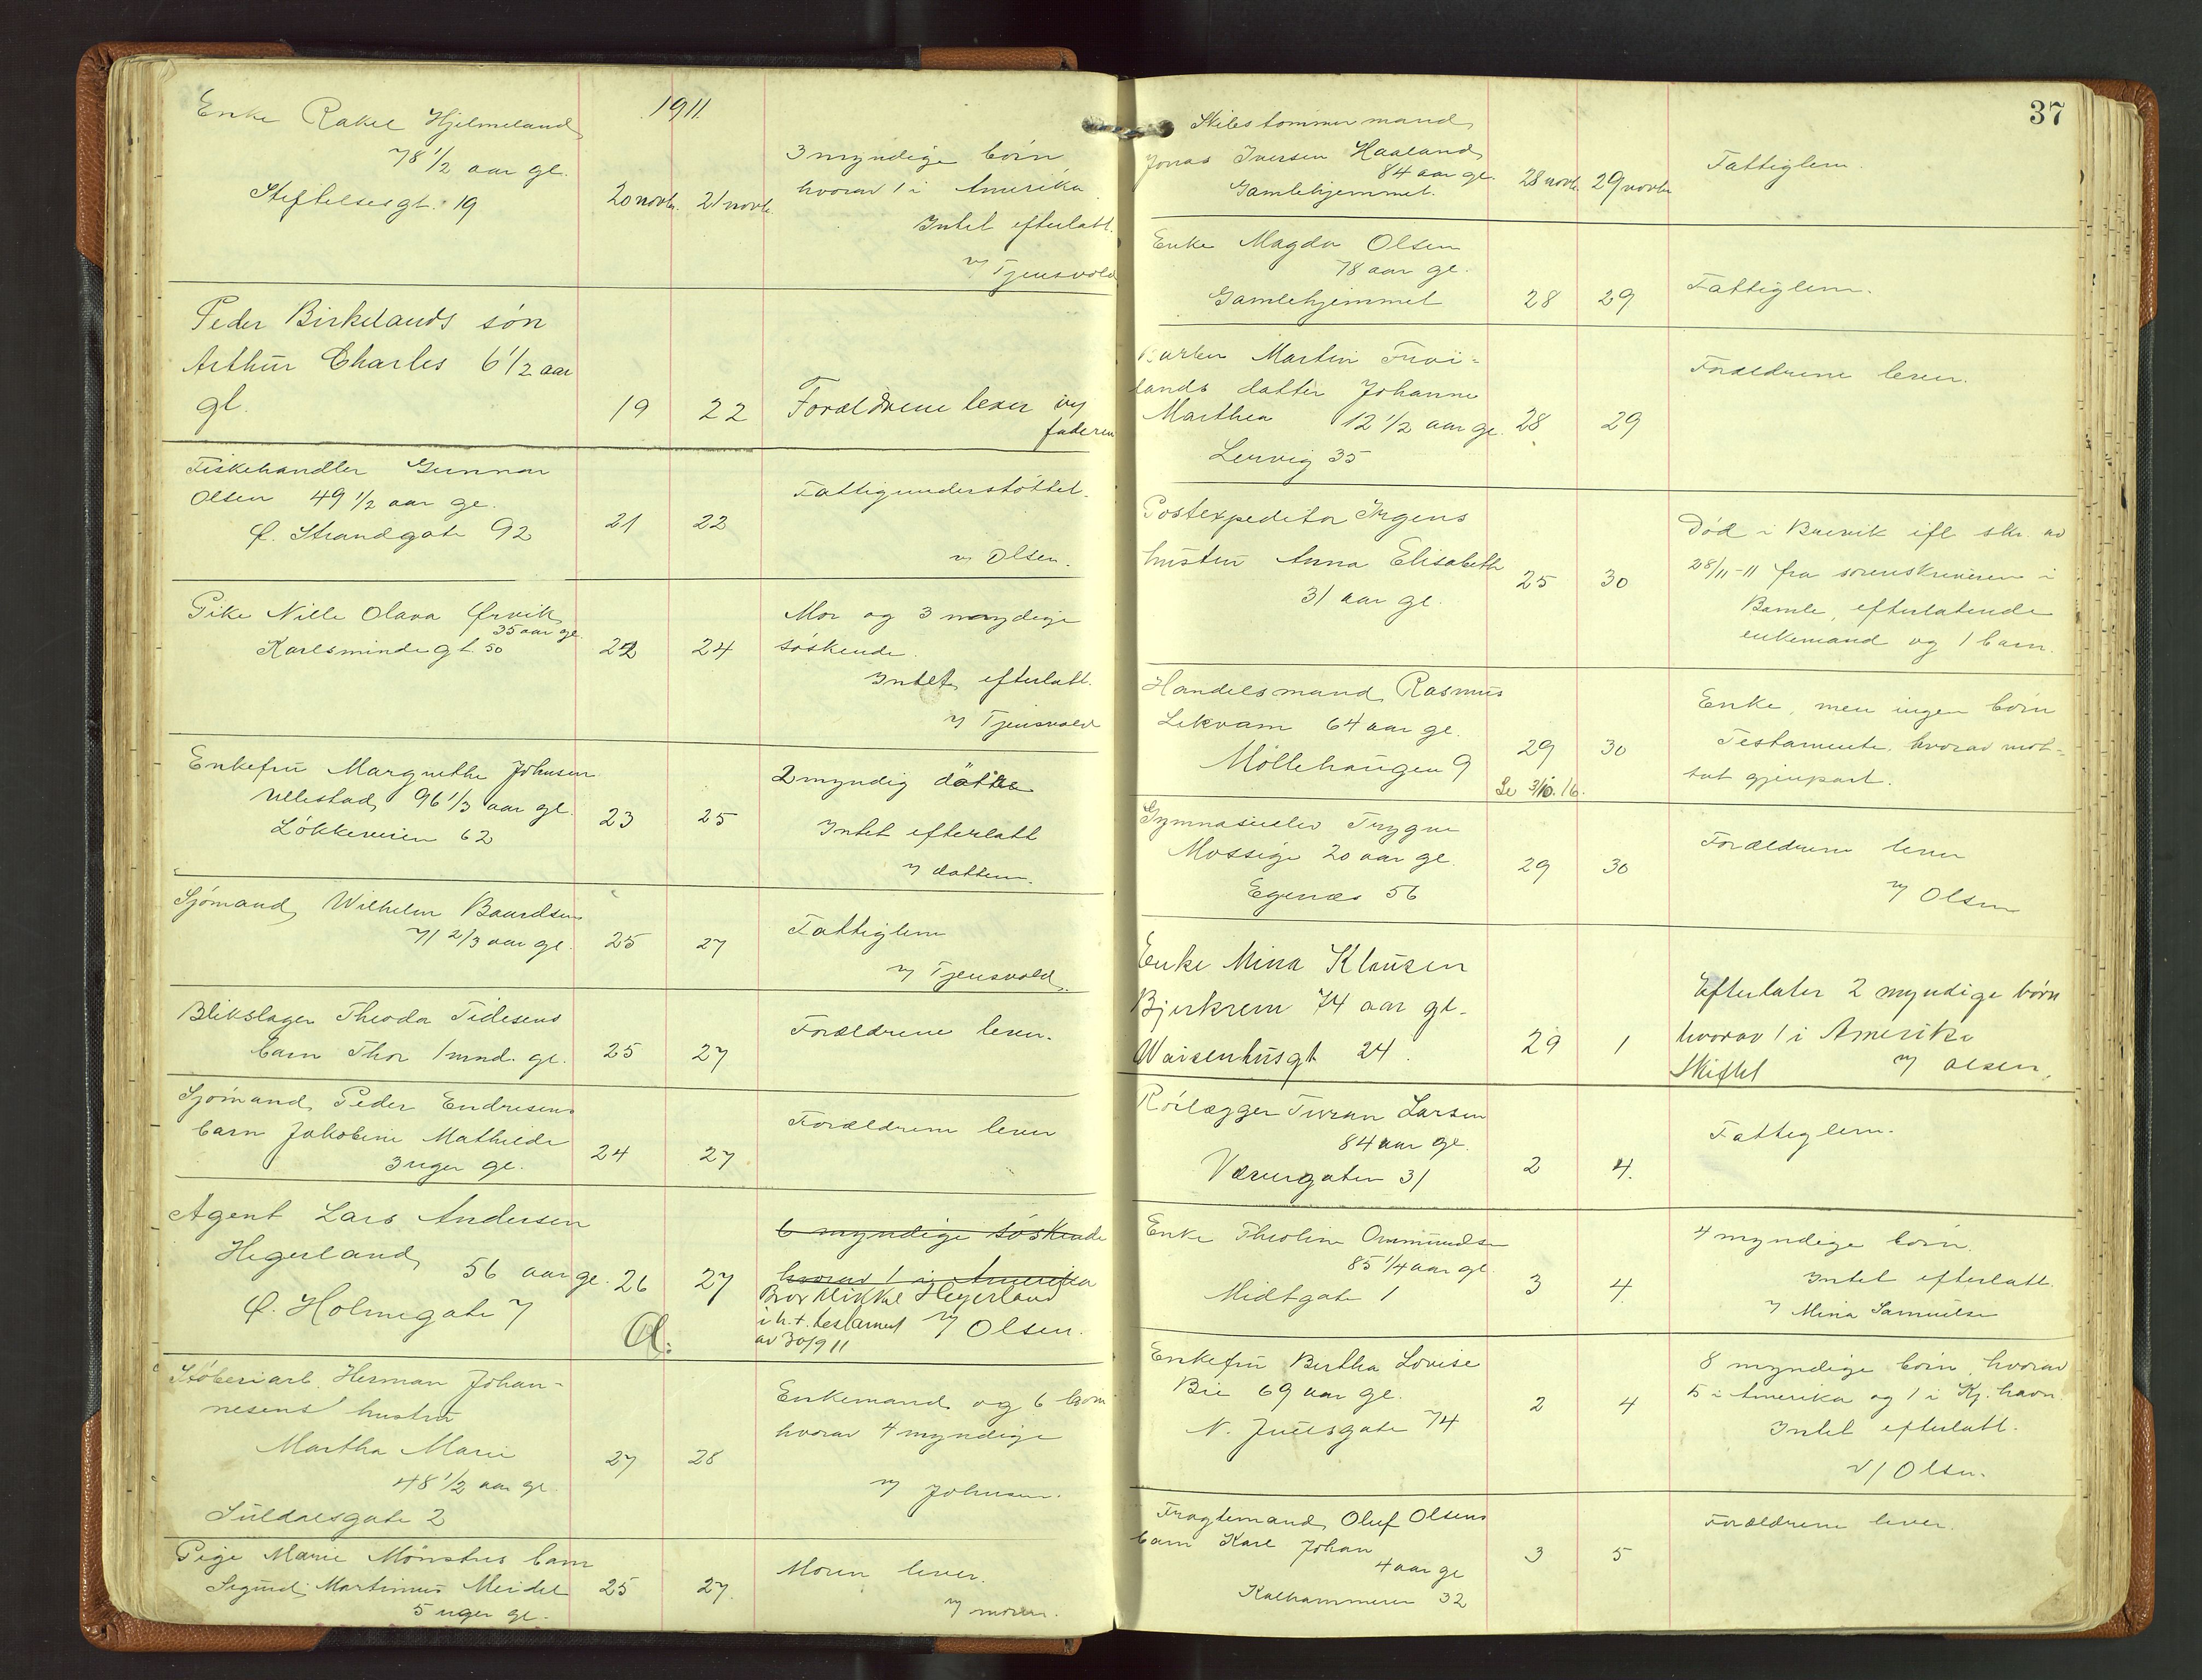 1911
Enke Rakel Hjelmeland
78 1/2 aar gl.
Stiftelsesgt. 19
20 novbr. 21 novbr.
3 myndige børn
hvorav 1 i Amerika
Intet efterlatt.
v/ Tjensvold
Peder Birkelands søn
Arthur Charles 6 1/2 aar
gl.
19 22
Forældrene lever v/
faderen
Fiskehandler Gunnar
Olsen 49 1/2 aar gl.
Ø. Strandgate 92
21 22
Fattigunderstøttet.
v/ Olsen.
Pike Nille Olava Ørvik
35 aar gl
Karlsmindegt. 50
22 24
Mor og 3 myndige
søskende.
Intet efterlatt.
v/ Tjensvold
Enkefru Margrethe Johnsen
Ullestad 96 1/3 aar gl.
Løkkeveien 62
23 25
2 myndig døttre
Intet efterlatt
v/ datteren.
Sjømand Wilhelm Baardsen
71 2/3 aar gl.
25 27
Fattiglem
v/ Tjensvold.
Blikslager Theodor Tidesens
barn Thor 1 mnd. gl.
25 27
Forældrene lever.
Sjømand Peder Endresens
barn Jakobine Mathilde
3 uger gl.
24 27
Forældrene lever
Agent Lars Andersen
Hegerland
56 aar gl.
Ø. Holmegate 7
26 27
a:
6 myndige søskende
hvorav 1 i Amerika
Bror Mikkel Hegerland
i h. t. testament v/ Olsen.
av 30/9 11
Støberiarb. Herman Johan-
nesens hustru
Martha Marie
48 1/2 aar gl.
Suldalsgate 2
27 28
Enkemand og 6 børn
hvorav 4 myndige
v/ Johnsen.
Pige Marie Mønstres barn
Sigurd Martinius Meidel
5 uger gl.
25 27.
Moren lever.
v/ moren.
37
Skibstømmermand
Jonas Iversen Haaland
84 aar gl.
Gamlehjemmet.
28 novbr. 29 novbr
Fattiglem
Enke Magda Olsen
78 aar gl.
Gamlehjemmet
28 29
Fattiglem.
Martin Frøi-
lands datter Johanne
Marthea 12 1/2 aar gl.
Lervig 35
28 29
Forældrene lever.
Postexpeditør Irgens
hustru Anna Elisabeth
31 aar gl.
25 30
Død i Brevik ifl. skr. av
28/11-11 fra sorenskriveren i
Bamle, efterlatende
enkemand og 1 barn.
Handelsmand Rasmus
Lekvam 64 aar gl.
Møllehaugen 9
29 30
Se 3/10.16.
Enke, men ingen børn
Testamente, hvorav mot-
tat gjenpart.
Gymnasielev Trygve
Mossige 20 aar gl.
Egenæs 56
29 30
Forældrene lever
v/ Olsen
Enke Mina Klausen
Bjerkrem 74 aar gl.
Waisenhusgt 24.
29 1
Efterlater 2 myndige børn
hvorav 1 i Amerika
Skiftet v/ Olsen.
Rørlægger Larsen
84 aar gl.
Værvegaten 31
2 4.
Fattiglem.
Enke Theoline Ommundsen
85 1/4 aar gl.
Midtgate 1
3 4.
4 myndige børn.
Intet efterlatt.
v/ Mina Samuelsen
Enkefru Bertha Lovise
Bie 69 aar gl.
N. Juelsgate 74
2 4
8 myndige børn, hvorav
5 i Amerika og 1 i Kj.havn.
Intet efterlatt.
v/ Olsen.
Fragtemand Oluf Olsens
barn Karl Johan
4 aar gl
Kalhammeren 32
3 5
Forældrene lever.